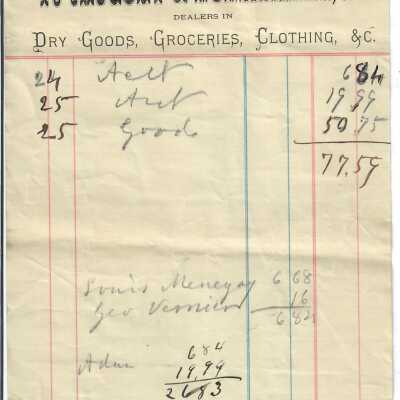 DEALERS IN
DRY GOODS, GROCERIES, CLOTHING, &C.
24 Act 6 84
25 Act 19,99
25 Goods 50,75
77,59
Louis Menegay 6 68
Geo Vernier 16
6 82
Adam 6 84
19,99
2683